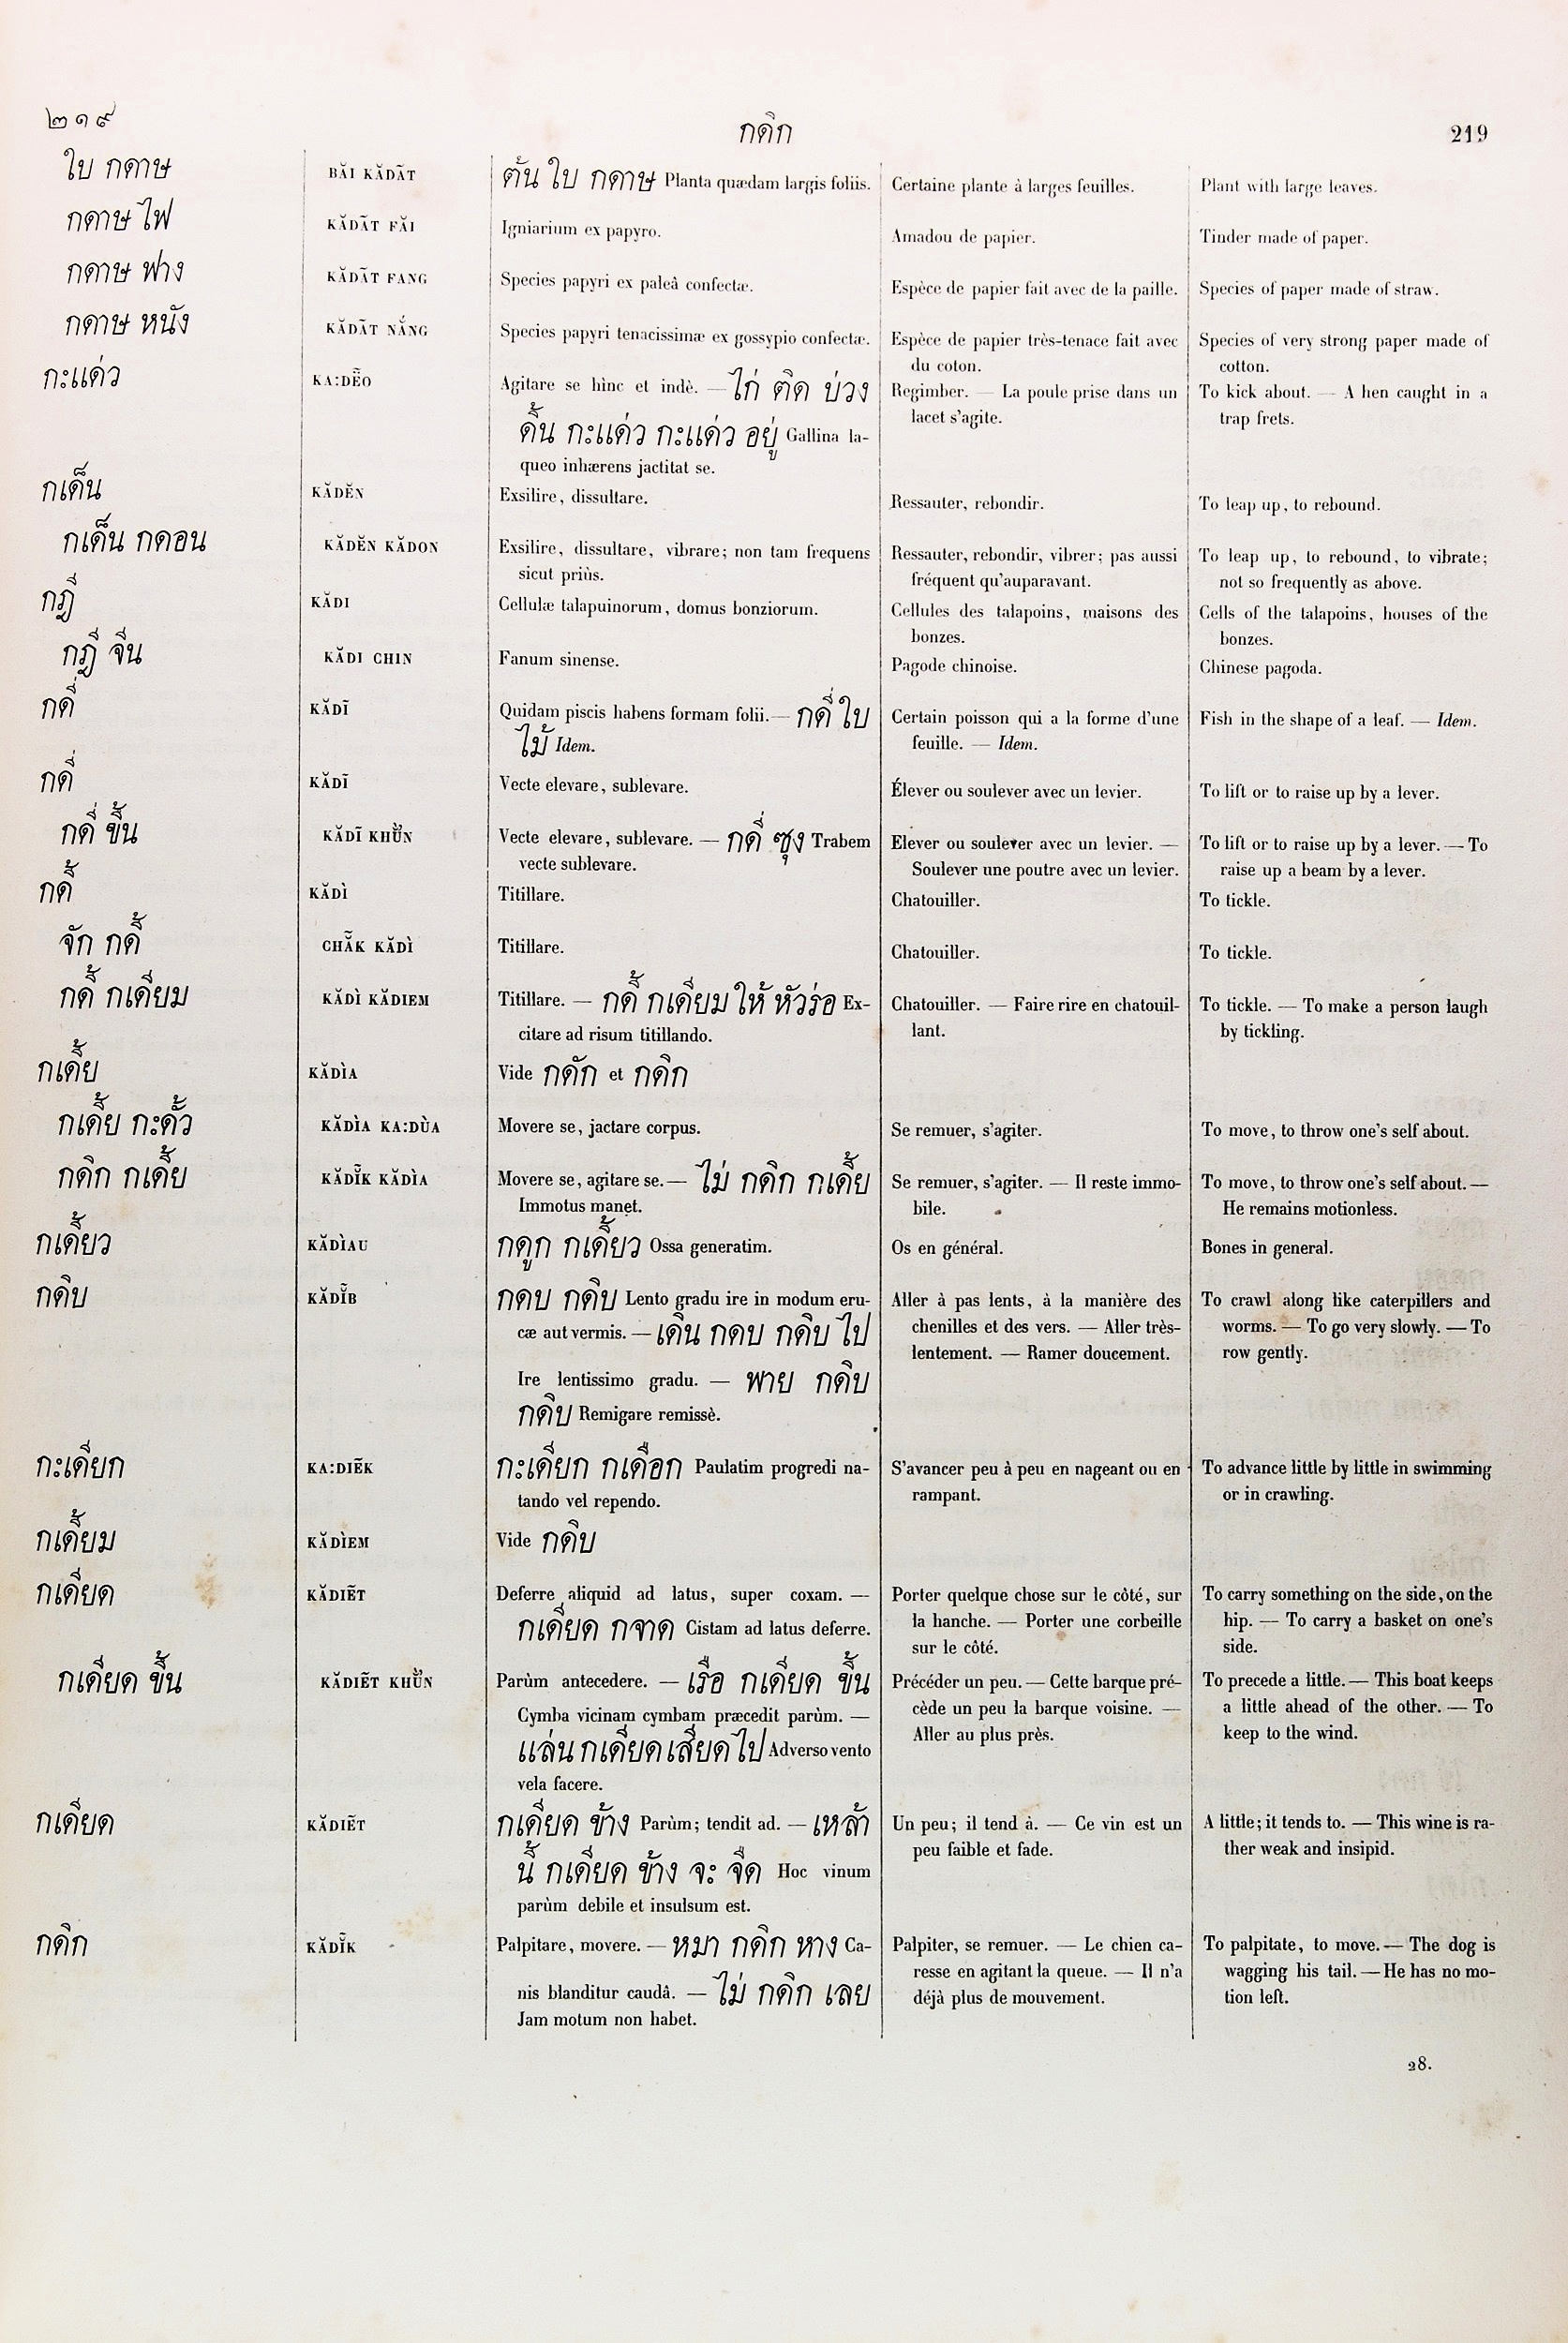 ๒๑๙
กดิก
219
ใบ กดาษ
BĂI KĂDÃT
ต้น ใบ กดาษ Planta quædam largis foliis.
Certaine plante à larges feuilles.
Plant with large leaves.
กดาษ ไฟ
KĂDÃT FĂI
Igniarium ex papyro.
Amadou de papier.
Tinder made of paper.
กดาษ ฟาง
KĂDÃT FANG
Species papyri ex paleâ confectæ.
Espèce de papier fait avec de la paille.
Species of paper made of straw.
กดาษ หนัง
KĂDÃT NẮNG
Species papyri tenacissimæ ex gossypio confectæ.
Espèce de papier très-tenace fait avec
du coton.
Species of very strong paper made of
cotton.
กะแด่ว
KA:DẼO
Agitare se hìnc et indè. — ไก่ ติด บ่วง
ดิ้น กะแด่ว กะแด่ว อยู่ Gallina la-
queo inhærens jactitat se.
Regimber. — La poule prise dans un
lacet s'agite.
To kick about. — A hen caught in a
trap frets.
กเด็น
KĂDĔN
Exsilire, dissultare.
Ressauter, rebondir.
To leap up, to rebound.
กเด็น กดอน
KĂDĔN KĂDON
Exsilire, dissultare, vibrare; non tam frequens
sicut priùs.
Ressauter, rebondir, vibrer; pas aussi
fréquent qu'auparavant.
To leap up, to rebound, to vibrate;
not so frequently as above.
กฎี
KĂDI
Cellulæ talapuinorum, domus bonziorum.
Cellules des talapoins, maisons des
bonzes.
Cells of the talapoins, houses of the
bonzes.
กฎี จีน
KĂDI CHIN
Fanum sinense.
Pagode chinoise.
Chinese pagoda.
กดี่
KĂDĨ
Quidam piscis habens formam folii.— กดี่ ใบ
ไม้ Idem.
Certain poisson qui a la forme d'une
feuille. — Idem.
Fish in the shape of a leaf. — Idem.
กดี่
KĂDĨ
Vecte elevare, sublevare.
Élever ou soulever avec un levier.
To lift or to raise up by a lever.
กดี่ ขึ้น
KĂDĨ KHỮN
Vecte elevare, sublevare. — กดี่ ซุง Trabem
vecte sublevare.
Elever ou soulever avec un levier. —
Soulever une poutre avec un levier.
To lift or to raise up by a lever. — To
raise up a beam by a lever.
กดี้
KĂDÌ
Titillare.
Chatouiller.
To tickle.
จัก กดี้
CHẴK KĂDÌ
Titillare.
Chatouiller.
To tickle.
กดี้ กเดียม
KĂDÌ KĂDIEM
Titillare. — กดี้ กเดียม ให้ หัวร่อ Ex-
citare ad risum titillando.
Chatouiller. — Faire rire en chatouil-
lant.
To tickle. — To make a person laugh
by tickling.
กเดี้ย
KĂDÌA
Vide กดัก et กดิก
กเดี้ย กะดั้ว
KĂDÌA KA:DÙA
Movere se, jactare corpus.
Se remuer, s'agiter.
To move, to throw one's self about.
กดิก กเดี้ย
KĂDĬ̃K KĂDÌA
Movere se, agitare se.— ไม่ กดิก กเดี้ย
Immotus manet.
Se remuer, s'agiter. — Il reste immo-
bile.
To move, to throw one's self about. —
He remains motionless.
กเดี้ยว
KĂDÌAU
กดูก กเดี้ยว Ossa generatim.
Os en général.
Bones in general.
กดิบ
KĂDĬ̃B
กดบ กดิบ Lento gradu ire in modum eru-
cæ aut vermis. — เดิน กดบ กดิบ ไป
Ire lentissimo gradu. — พาย กดิบ
กดิบ Remigare remissè.
Aller à pas lents, à la manière des
chenilles et des vers. — Aller très-
lentement. — Ramer doucement.
To crawl along like caterpillers and
worms. — To go very slowly. — To
row gently.
กะเดียก
KA:DIẼK
กะเดียก กเดือก Paulatim progredi na-
tando vel rependo.
S'avancer peu à peu en nageant ou en
rampant.
To advance little by little in swimming
or in crawling.
กเดี้ยม
KĂDÌEM
Vide กดิบ
กเดียด
KĂDIẼT
Deferre aliquid ad latus, super coxam. —
กเดียด กจาด Cistam ad latus deferre.
Porter quelque chose sur le côté, sur
la hanche. — Porter une corbeille
sur le côté.
To carry something on the side, on the
hip. — To carry a basket on one's
side.
กเดียด ขึ้น
KĂDIẼT KHỮN
Parùm antecedere. — เรือ กเดียด ขึ้น
Cymba vicinam cymbam præcedit parùm. —
แล่น กเดียด เสียด ไป Adverso vento
vela facere.
Précéder un peu. — Cette barque pré-
cède un peu la barque voisine. —
Aller au plus près.
To precede a little. — This boat keeps
a little ahead of the other. — To
keep to the wind.
กเดียด
KĂDIẼT
กเดียด ข้าง Parùm; tendit ad. — เหล้า
นี้ กเดียด ข้าง จะ จืด Hoc vinum
parùm debile et insulsum est.
Un peu; il tend à. — Ce vin est un
peu faible et fade.
A little; it tends to. — This wine is ra-
ther weak and insipid.
กดิก
KĂDĬ̃K
Palpitare, movere. — หมา กดิก หาง Ca-
nis blanditur caudâ. — ไม่ กดิก เลย
Jam motum non habet.
Palpiter, se remuer. — Le chien ca-
resse en agitant la queue. — Il n'a
déjà plus de mouvement.
To palpitate, to move. — The dog is
wagging his tail. — He has no mo-
tion left.
28.